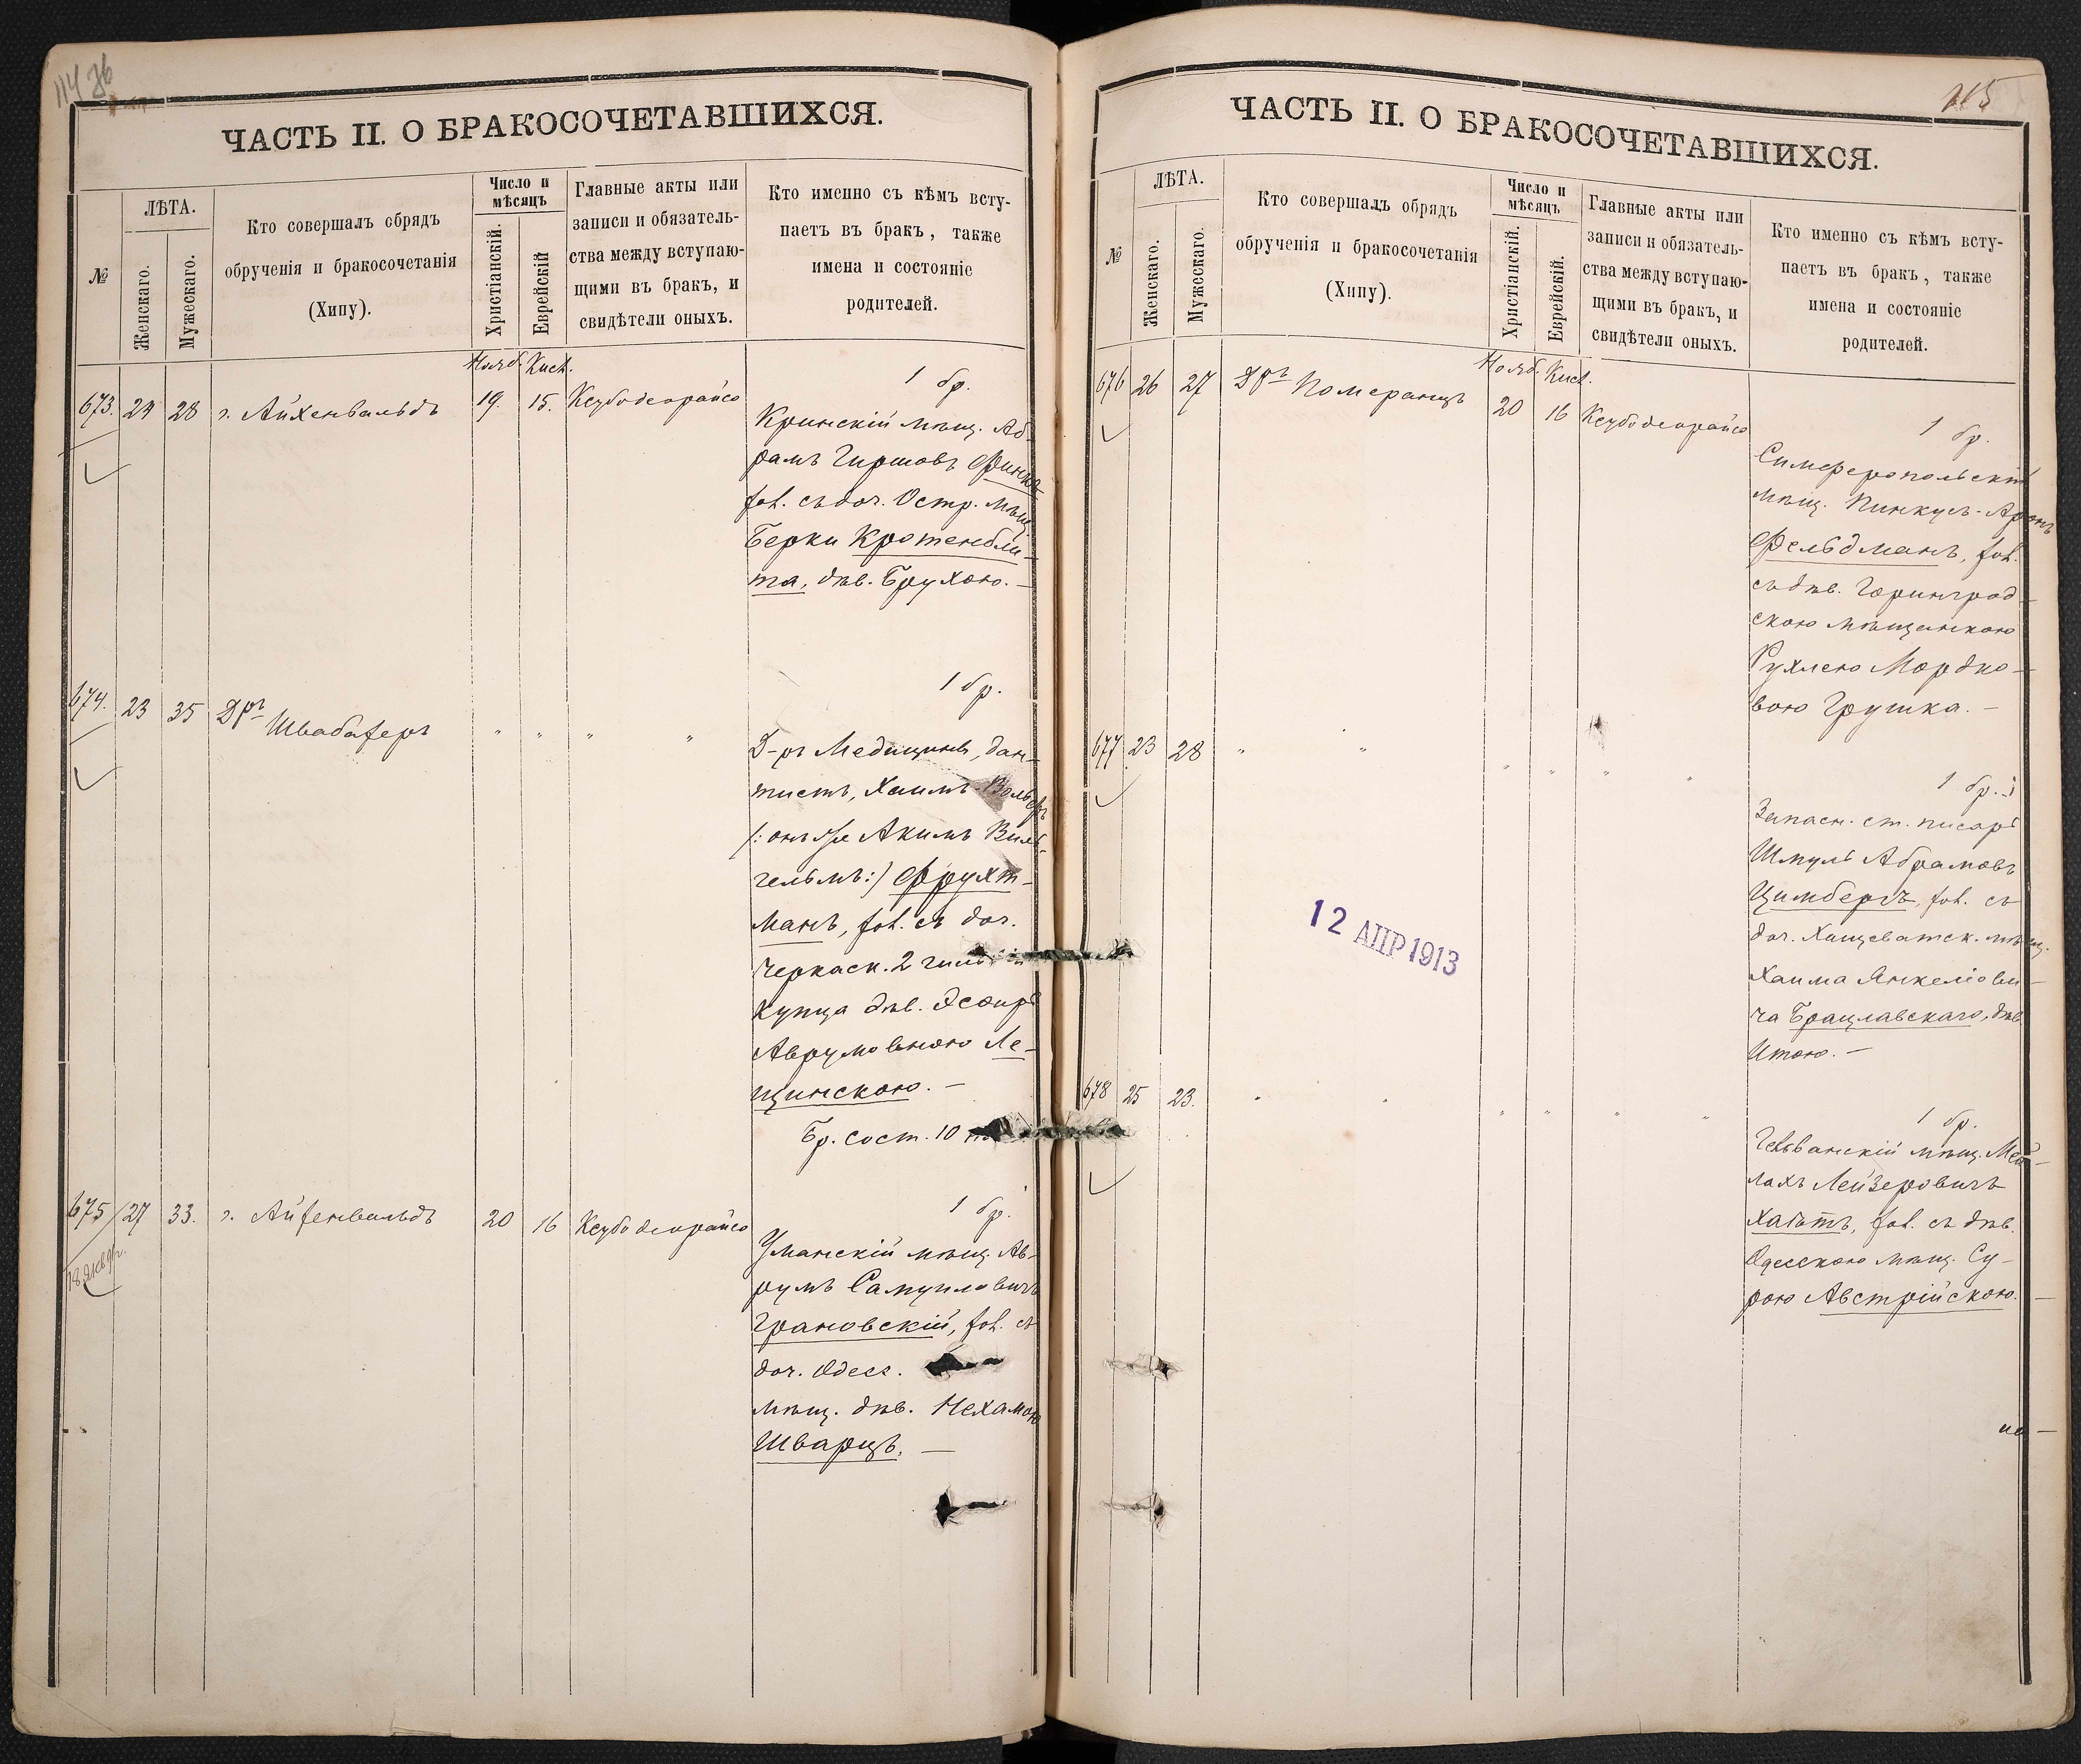 114 об
ЧАСТЬ II. О БРАКОСОЧЕТАВШИХСЯ.
№
ЛѢТА.
Женскаго.
Мужескаго.
Кто совершалъ обрядъ
обрученія и бракосочетанія
(Хипу).
Число и
мѣсяцъ
Христіанскій.
Еврейскій
Главные акты или
записи и обязатель-
ства между вступаю-
щими въ бракъ, и
свидѣтели оныхъ.
Кто именно съ кѣмъ всту-
паетъ въ бракъ, также
имена и состояніе
родителей.
Нояб. Кисл.
673. 24 28 г. Айхенвальдъ 19. 15. Ксубо деорайсо
1 бр.
Кринскій мѣщ. Аб-
рамъ Гиршовъ Финкъ
хол. съ доч. Остр. мѣщ.
Берки Кротенбли-
та, дѣв. Брухою. —
674. 23 35 Дръ Швабахеръ " " " "
1 бр.
Д-ръ Медицины, дан-
тистъ, Хаимъ-Вольфъ
/: онъ же Акимъ Виль-
гельмъ:/ Фрухт-
манъ, хол. съ доч.
Черкаск. 2 гильдіи
купца дѣв. Эсѳирь
Аврумовною Ле-
щинскою. —
Бр. сост. 10
675 27 33. г. Айхенвальдъ 20 16 Ксубо деорайсо
1 бр.
Уманскій мѣщ. Ав-
румъ Самуиловичъ
Грановскій, хол. съ
доч. Одесс.
мѣщ. дѣв. Нехамою
Шварцъ. —
115
ЧАСТЬ II. О БРАКОСОЧЕТАВШИХСЯ.
№
ЛѢТА.
Женскаго.
Мужескаго.
Кто совершалъ обрядъ
обрученія и бракосочетанія
(Хипу).
Число и
мѣсяцъ
Христіанскій.
Еврейскій.
Главные акты или
записи и обязатель-
ства между вступаю-
щими въ бракъ, и
свидѣтели оныхъ.
Кто именно съ кѣмъ всту-
паетъ въ бракъ, также
имена и состояніе
родителей.
Нояб. Кисл.
676 26 27 Дръ Померанцъ 20 16 Ксубо деорайсо
1 бр.
Симферопольскій
мѣщ. Пинкусъ-Аронъ
Фельдманъ, хол.
съ дѣв. Горинград-
скою мѣщанкою
Рухлею Мордко-
вою Грушка. —
677 23 28 " " " " " "
1 бр.
Запасн. ст. писарь
Шмуль Абрамовъ
Цимбергъ, хол. съ
доч. Хащеватск. мѣщ.
Хаима Янкеліови-
ча Брацлавскаго, дѣв.
Итою. —
12 АПР 1913
678 25 23. " " " " " "
1 бр.
мѣщ. Мей-
лахъ Лейзеровичъ
Хабатъ, хол. съ дѣв.
Одесскою мѣщ. Су-
рою Австрійскою. —